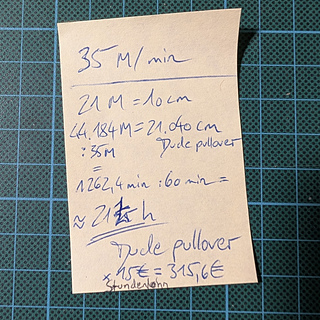 35 M/min
21 M = 10 cm
44.184 M = 21.040 cm
: 35 M Dude pullover
=
1262,4 min : 60 min =
≈ 21 h
Dude pullover
× 15€ = 315,6€
Stundenlohn